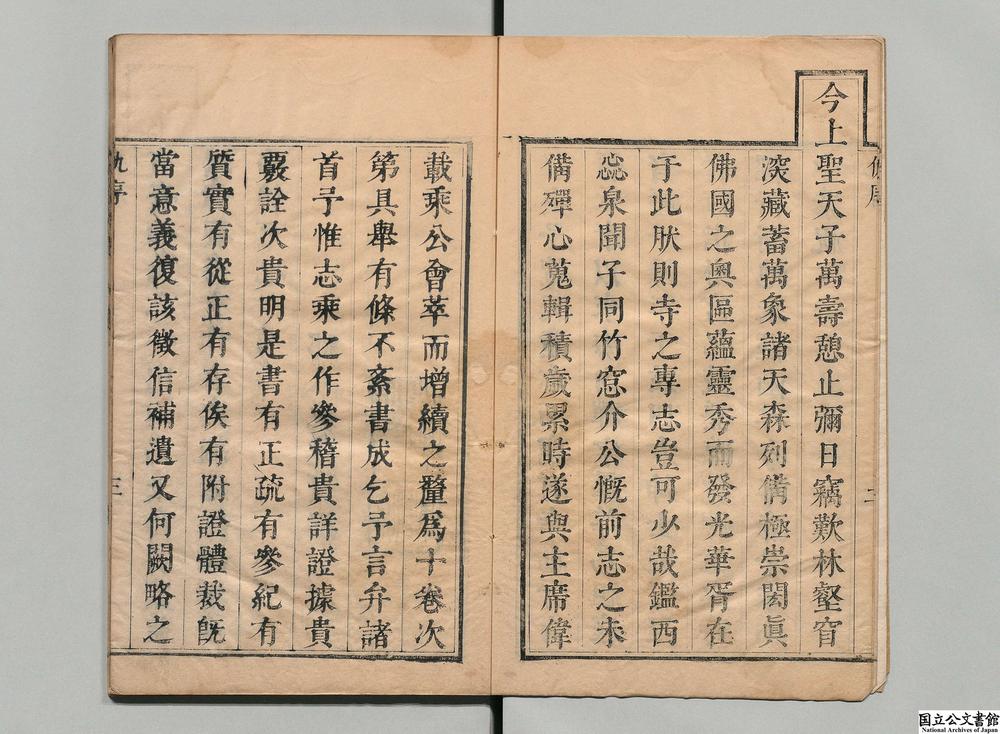 今上聖天子萬壽憩止彌日竊歎林壑窅
深藏蓄萬象諸天森列備極崇閎眞
佛國之奧區蘊靈秀而發光華胥在
于此肰則寺之專志豈可少哉鑑西
惢泉聞子同竹窓介公慨前志之未
備殫心蒐輯積歲累時遂與主席偉
載乘公會萃而增續之釐爲十卷次
第具舉有條不紊書成乞予言弁諸
首予惟志乘之作參稽貴詳證據貴
覈詮次貴明是書有正疏有參紀有
質實有從正有存俟有附證體裁旣
當意義復該徵信補遺又何闕略之
序
三
国立公文書館
National Archives of Japan